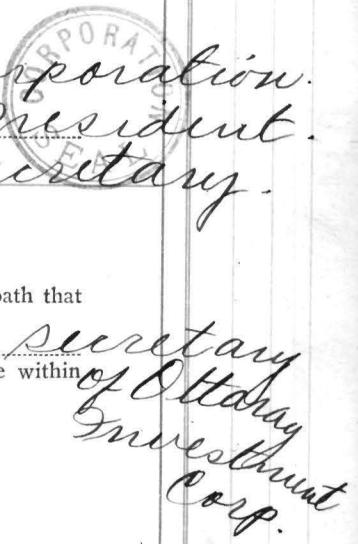 CORPORATION
SEAL
rporation.
President.
ecretary.
oath that
secretary
e within
of Ottaray
Investment
Corp.